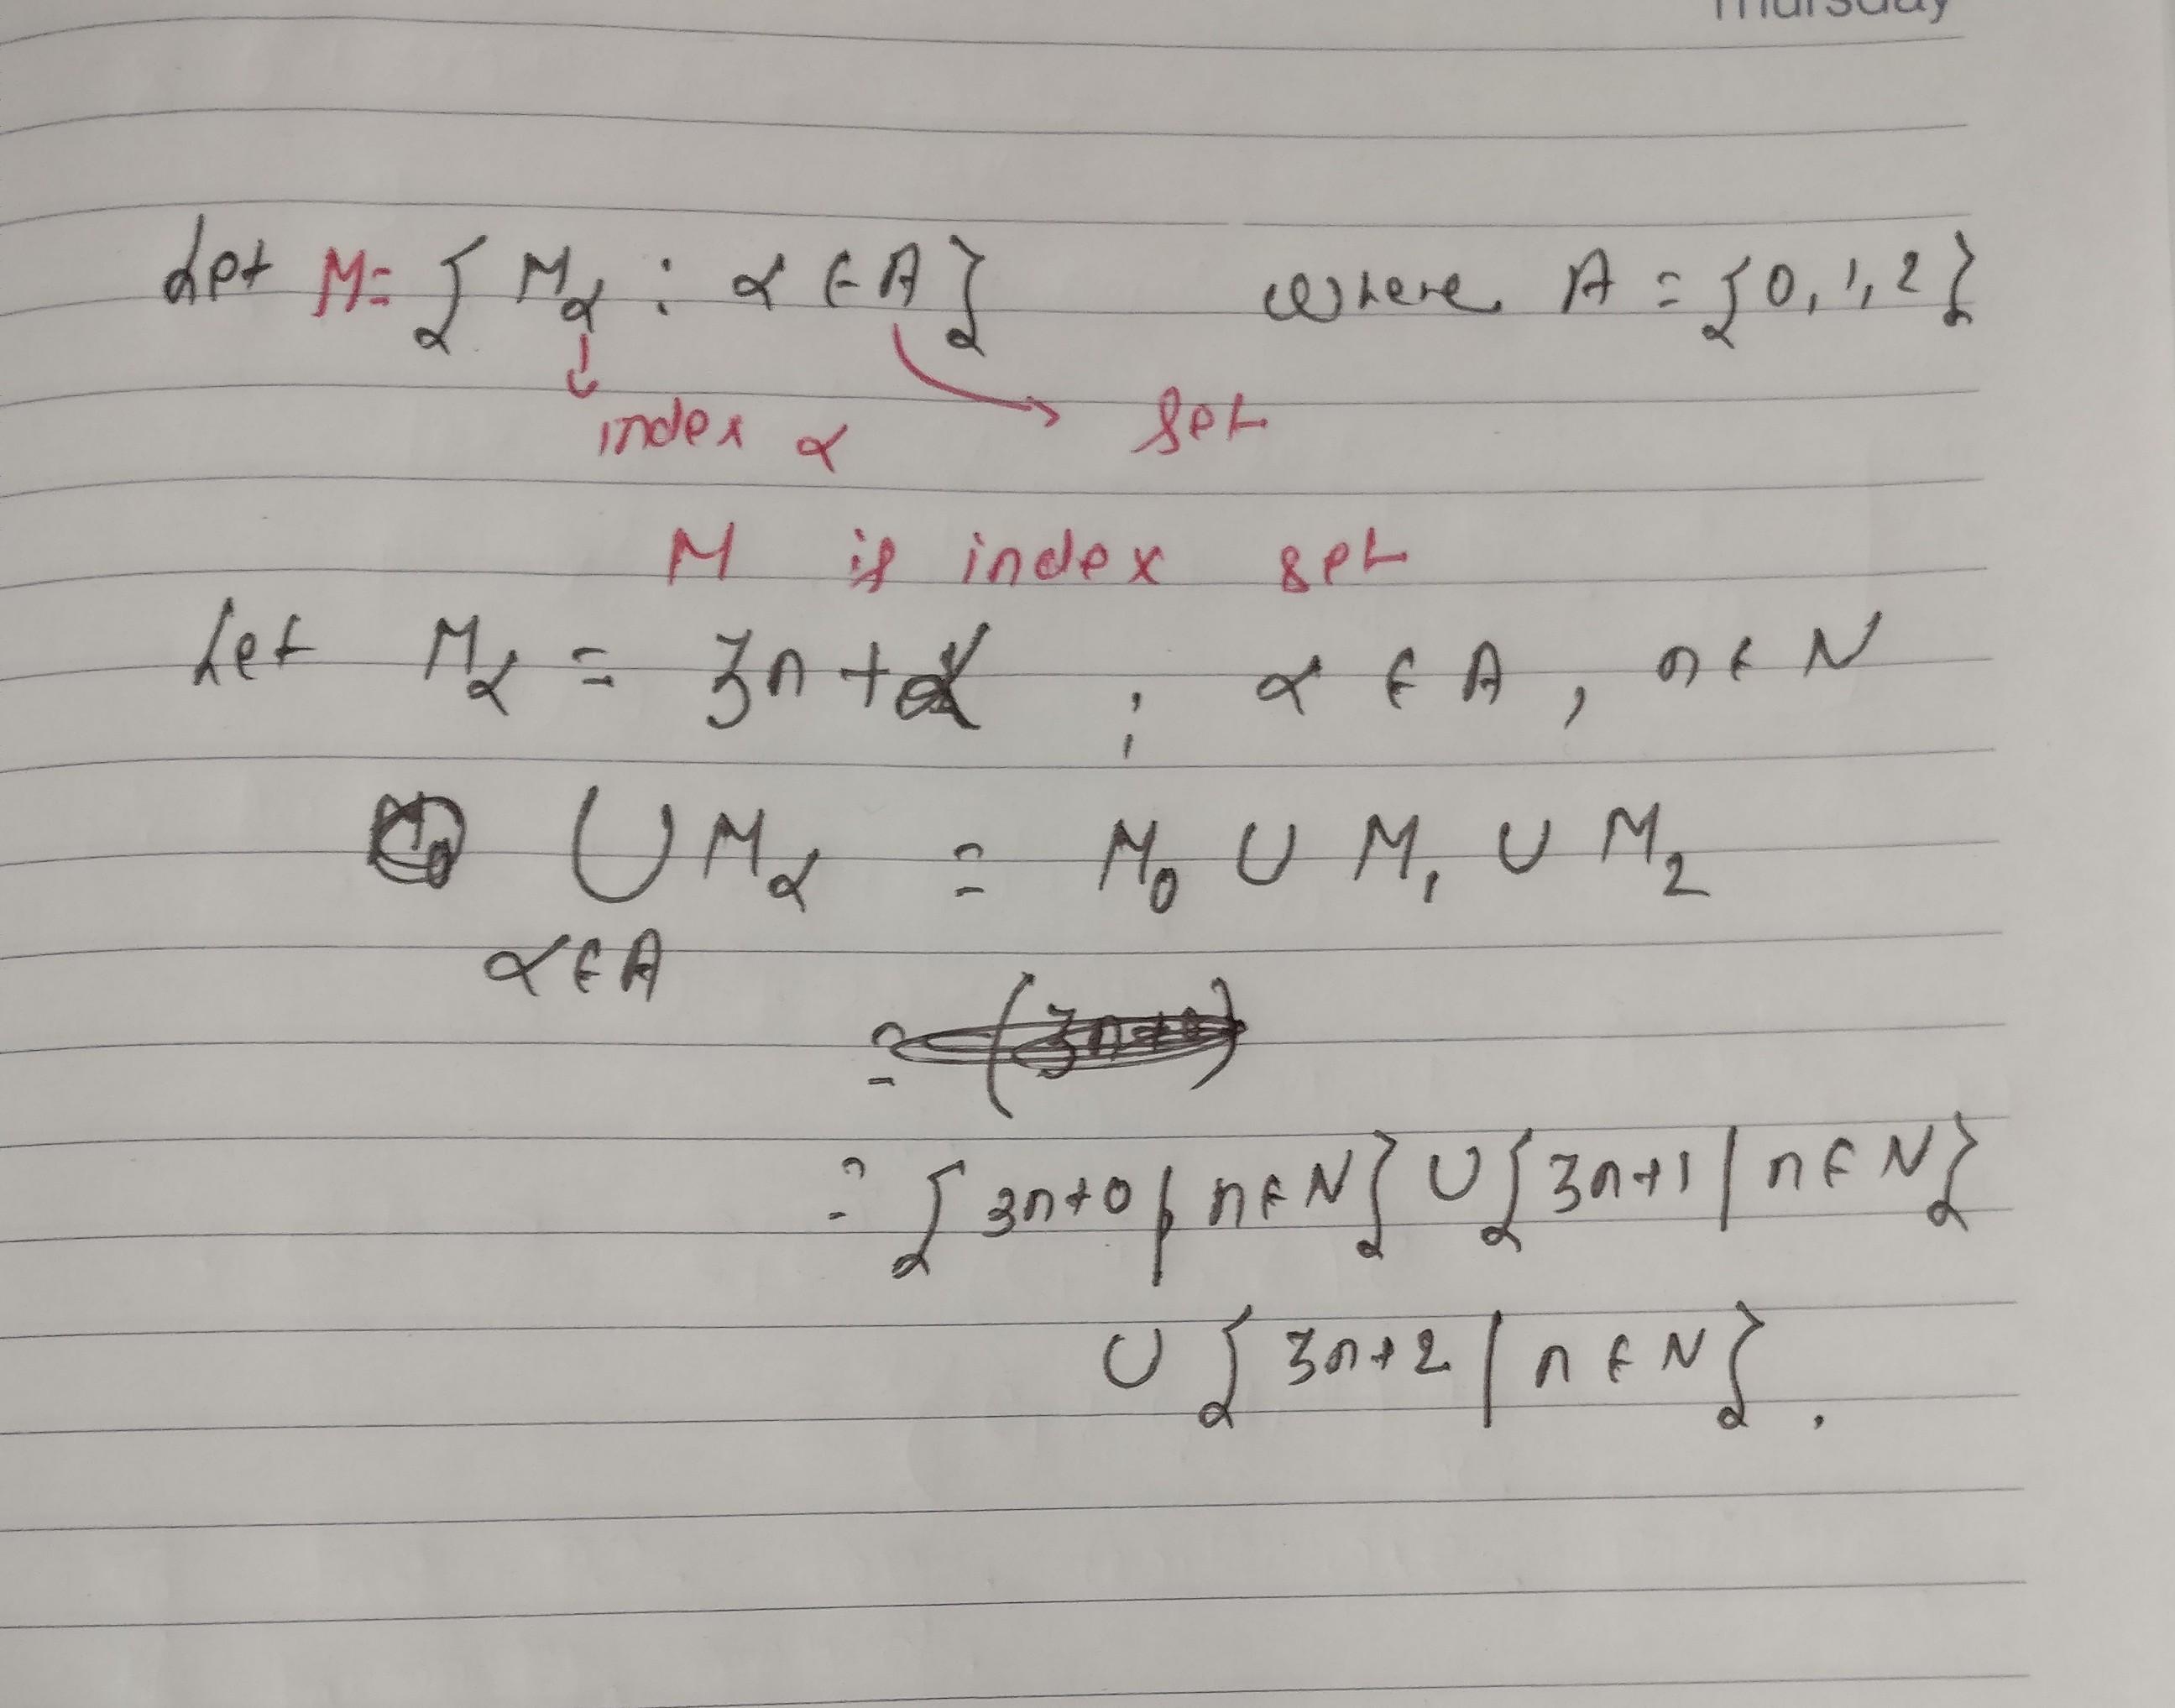 Thursday
Let M = { M_α : α ∈ A } where A = {0, 1, 2}
index α set
M is index set
Let M_α = 3n + α ; α ∈ A, n ∈ N
⋃ M_α = M_0 ∪ M_1 ∪ M_2
α ∈ A
=
= { 3n+0 | n ∈ N } ∪ { 3n+1 | n ∈ N }
∪ { 3n+2 | n ∈ N }.